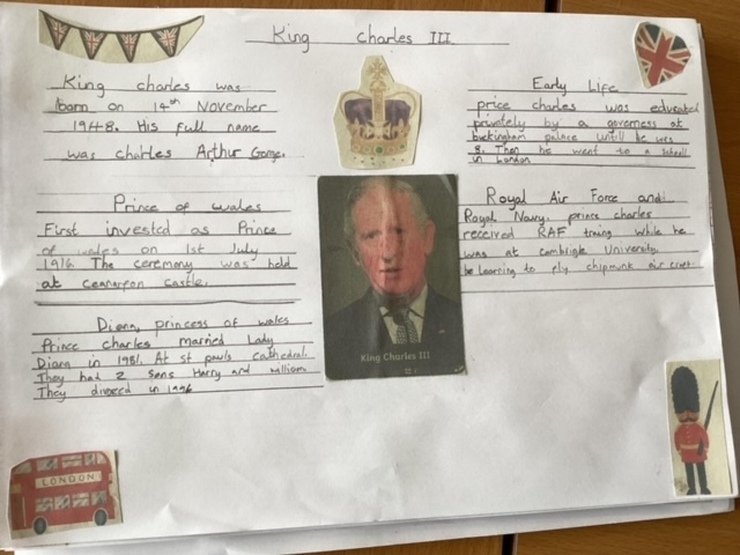 King Charles III
King charles was
born on 14th November
1948. His full name
was charles Arthur Gorge.
Prince of wales
First invested as Prince
of wales on 1st July
1916. The ceremony was held
at ceanarfon castle.
Diana, princess of wales
Prince charles married Lady
Diana in 1981. At st pauls cathedral.
They had 2 sons Harry and william
They divorced in 1996
King Charles III
Early Life
price charles was educated
privately by a governess at
buckingham palace untill he was
8. Then he went to a school
in London
Royal Air Force and
Royal Navy. prince charles
received RAF traing while he
was at cambrigle University.
he Learning to fly chipmunk air craft
LONDON